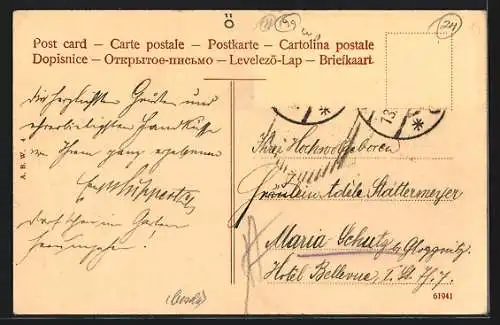 Ö
99
24
Post card – Carte postale – Postkarte – Cartolina postale
Dopisnice – Открытое-письмо – Levelező-Lap – Briefkaart
13
A. B. W. 4
Die herzlichsten Grüße und
ehrerbietigsten Handküsse
von Ihrem ganz ergebenen
Dort
im Garten
Ihrer Hochwohlgeboren
Fräulein Adele Stättermeyer
Maria Schutz b. Gloggnitz
Hotel Bellevue, I. St.
61941